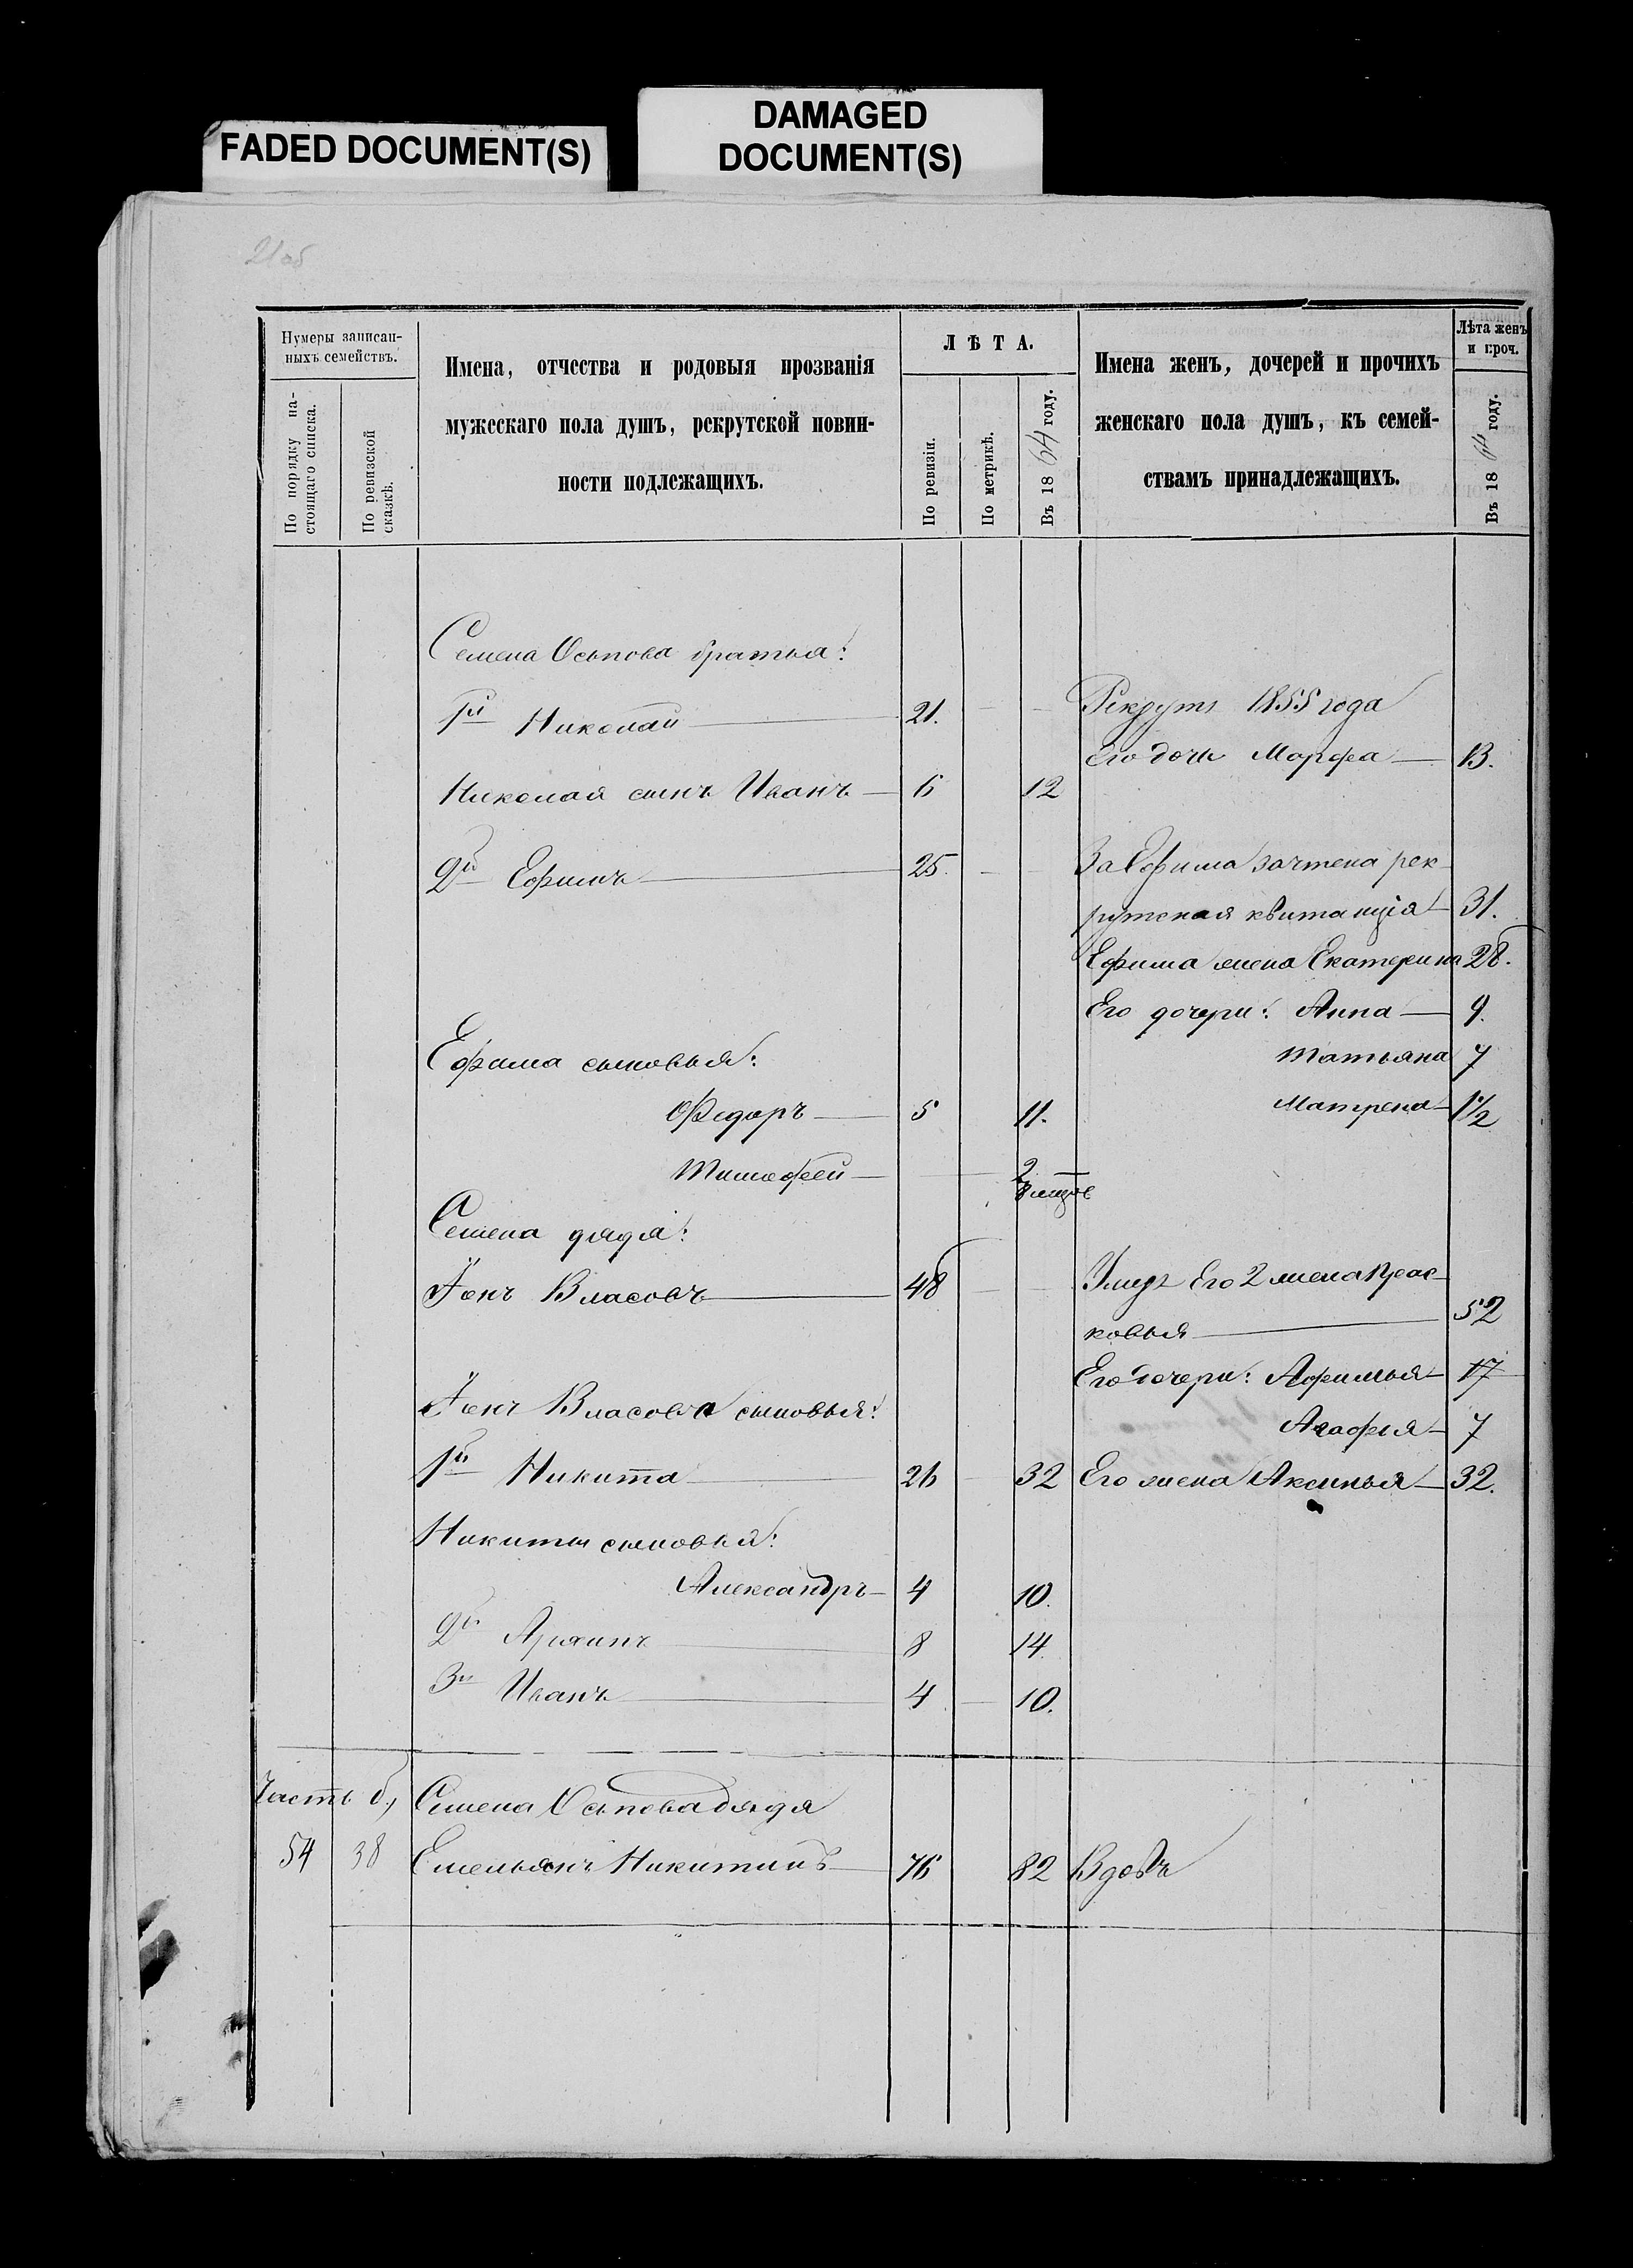 FADED DOCUMENT(S)
DAMAGED
DOCUMENT(S)
21об
Нумеры записан-
ныхъ семействъ.
По порядку на-
стоящаго списка.
По ревизской
сказкѣ.
Имена, отчества и родовыя прозванія
мужескаго пола душъ, рекрутской повин-
ности подлежащихъ.
ЛѢТА.
По ревизіи.
По метрикѣ.
Въ 1864 году.
Имена женъ, дочерей и прочихъ
женскаго пола душъ, къ семей-
ствамъ принадлежащихъ.
Лѣта женъ
и проч.
Въ 1864 году.
Семена Осипова братья:
1й Николай 21. Рекрутъ 1855 года
его дочь Марфа 13.
Николая сынъ Иванъ 6 12
2й Ефимъ 25. За Ефима зачтена рек
рутская квитанція 31.
Ефима жена Екатерина 28.
Его дочери: Анна 9.
Ефима сыновья: Татьяна 7
Федоръ 5 11. Матрена 1 1/2
Тимофей 2
8 месцов
Семена дядя:
Власовъ 48 Умеръ Его 2 жена Прас
ковья 52
Его дочери: Афимья 17
Власова сыновья:
Агафья 7
1й Никита 26 32 Его жена Аксинья 32.
Никиты сыновья:
Александръ 4 10.
2й Архипъ 8 14
3й Иванъ 4 10.
Часть б, Семена Осипова дядя
54 38 Емельянъ Никитинъ 76 82 Вдовъ